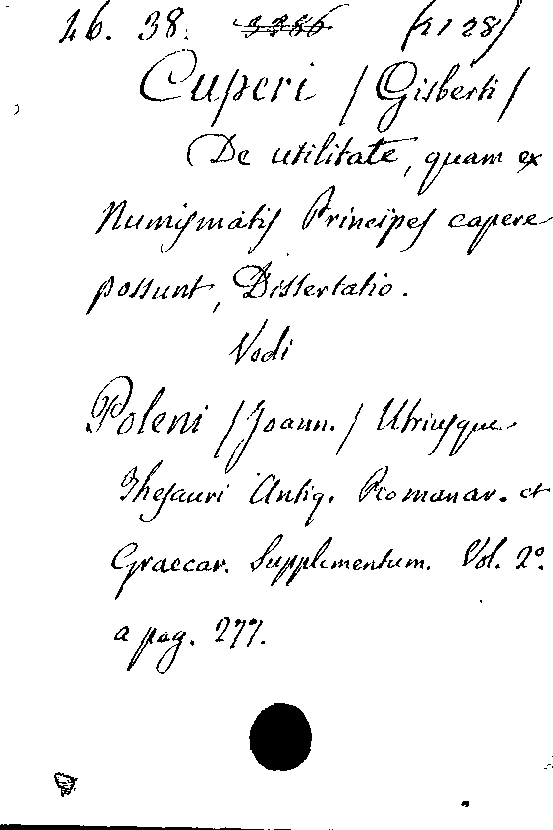 26. 38. 3286 (2128)
Cuperi / Gisberti /
De utilitate, quam ex
Numismatis Principes capere
possunt, Dissertatio.
Vedi
Poleni / Joann. / Utriusque
Thesauri Antiq. Romanar. et
Graecar. Supplementum. Vol. 2º.
a pag. 277.